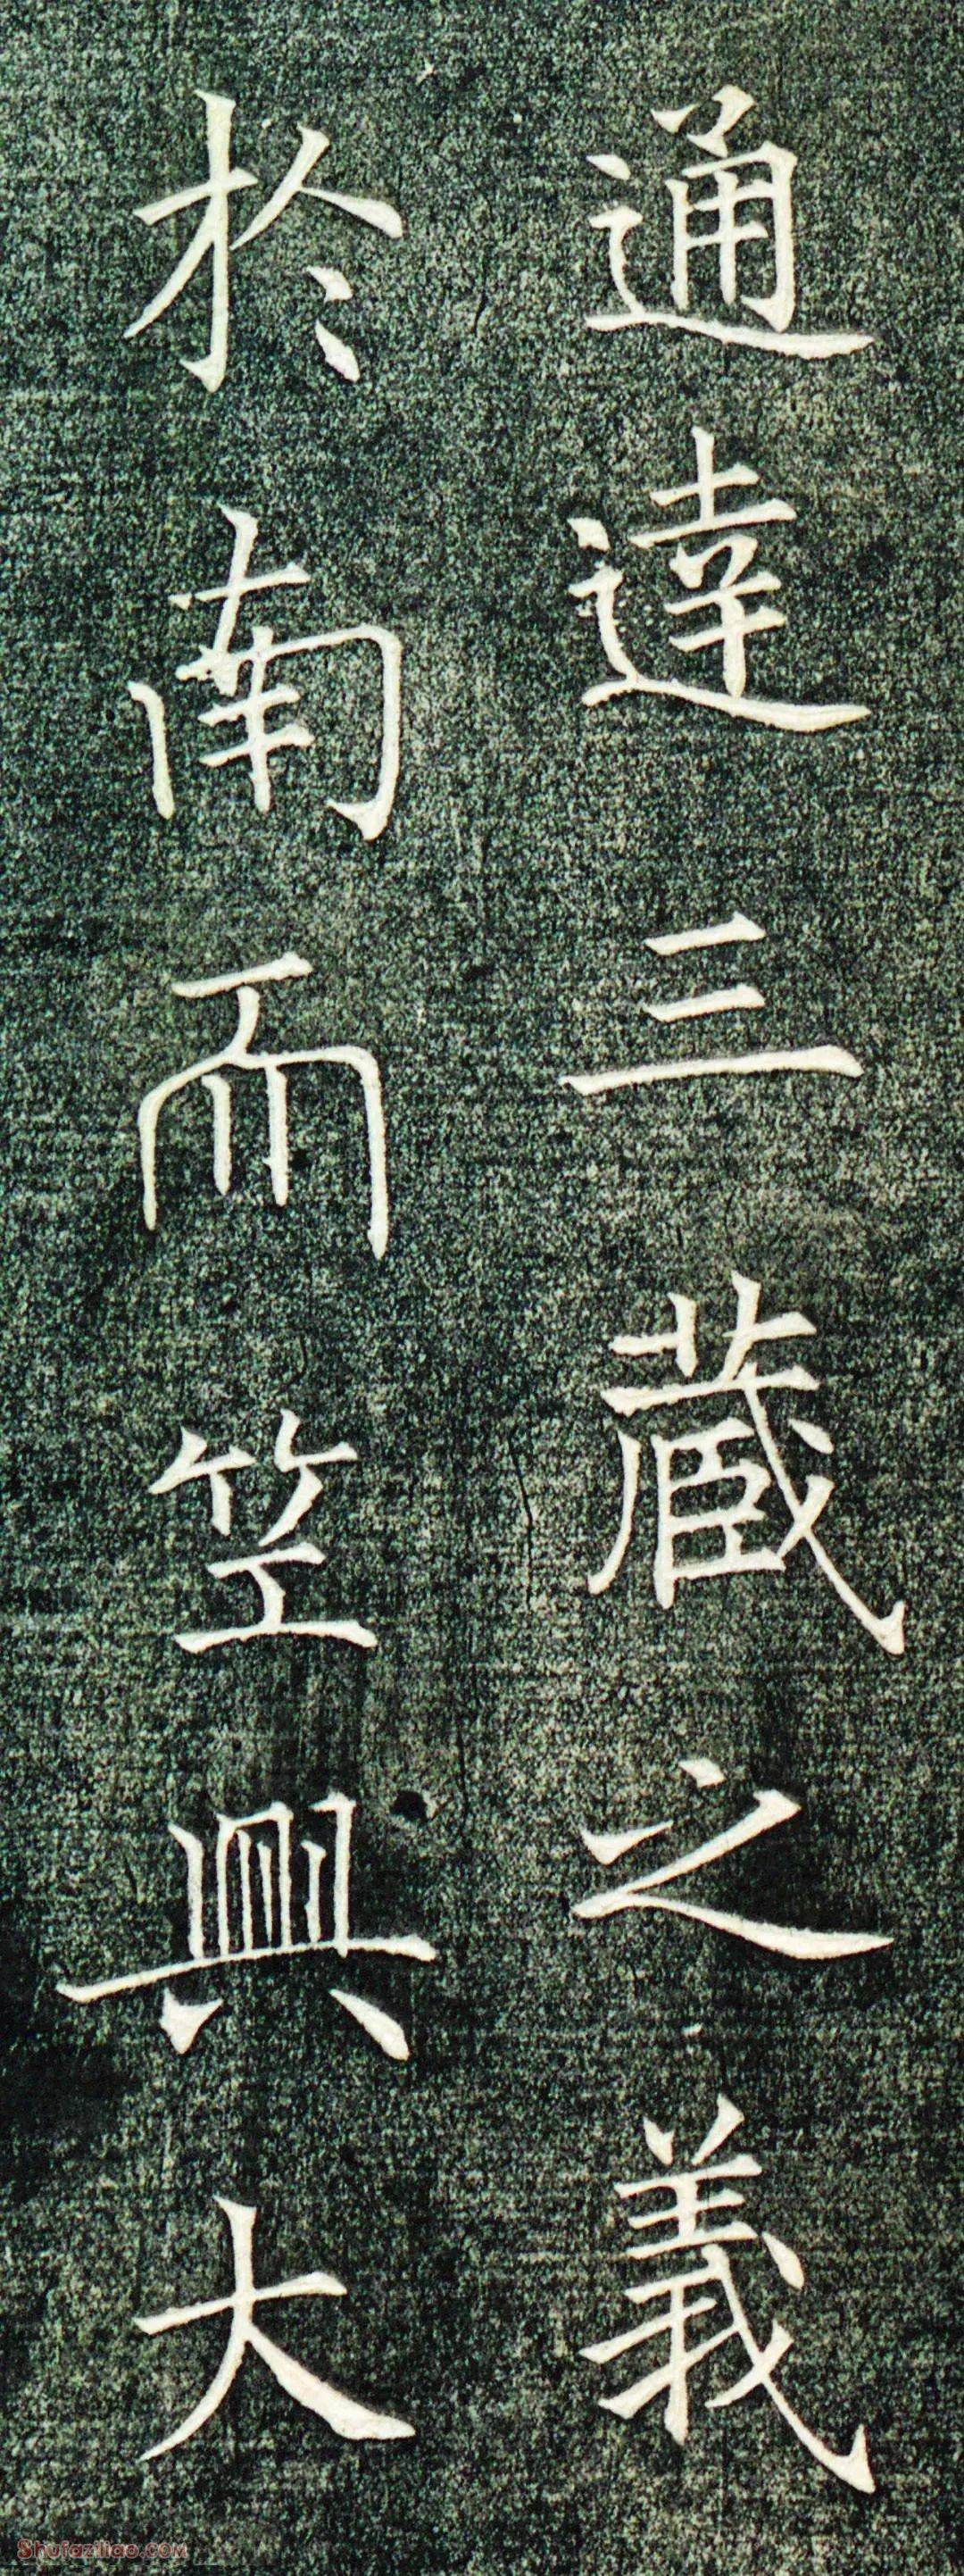 通達三蔵之義
於南而笠興大
Shufaziliao.com